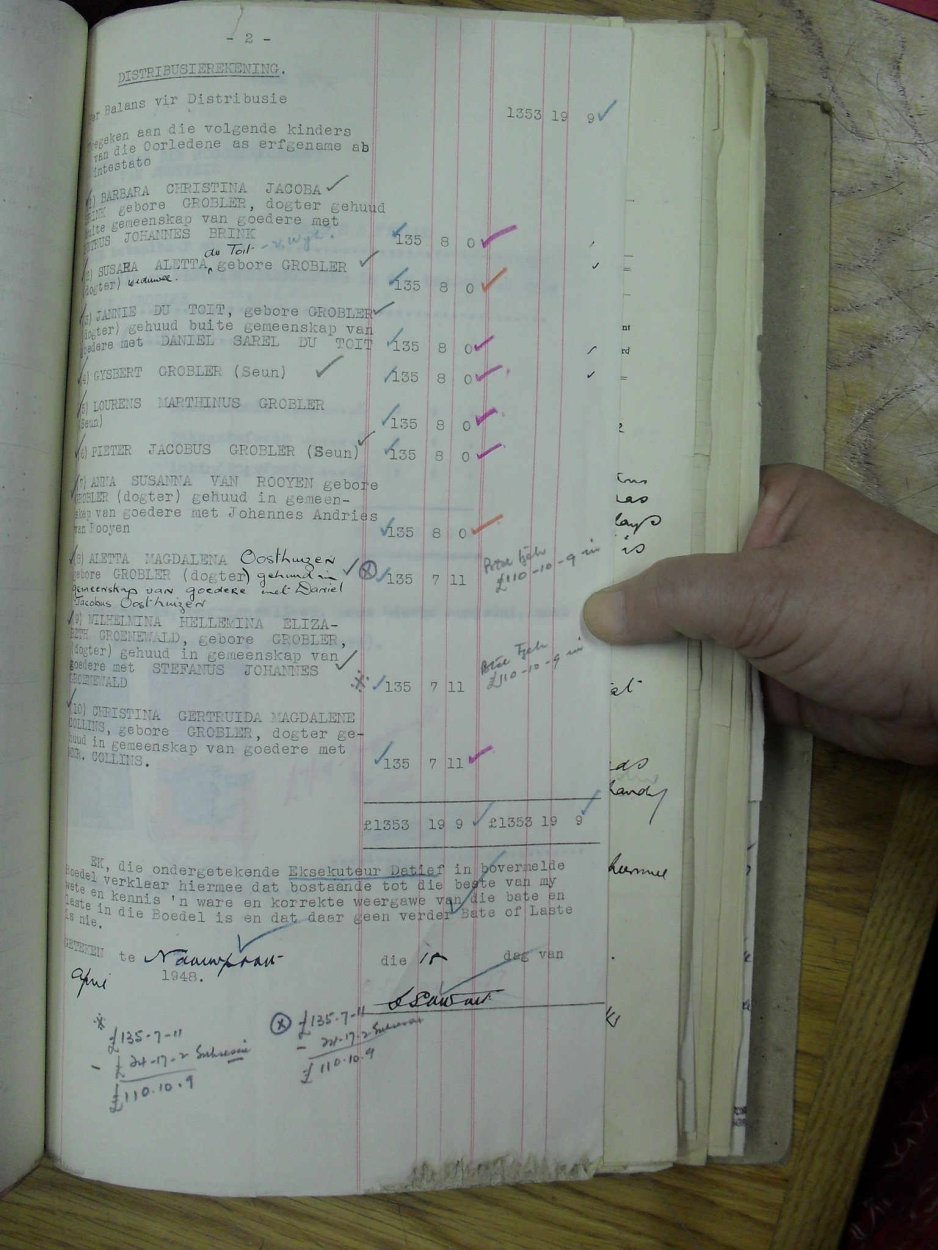 - 2 -
DISTRIBUSIEREKENING.
er Balans vir Distribusie 1353 19 9
egeken aan die volgende kinders
van die Oorledene as erfgename ab
intestato
) BARBARA CHRISTINA JACOBA
RINK gebore GROBLER, dogter gehuud
uite gemeenskap van goedere met
TRUS JOHANNES BRINK 135 8 0
du Toit
(2) SUSARA ALETTA, gebore GROBLER
(dogter) weduwee. 135 8 0
) JANNIE DU TOIT, gebore GROBLER
(dogter) gehuud buite gemeenskap van
goedere met DANIEL SAREL DU TOIT 135 8 0
(4) GYSBERT GROBLER (Seun) 135 8 0
(5) LOURENS MARTHINUS GROBLER
(Seun) 135 8 0
(6) PIETER JACOBUS GROBLER (Seun) 135 8 0
(7) ANNA SUSANNA VAN ROOYEN gebore
GROBLER (dogter) gehuud in gemeen-
skap van goedere met Johannes Andries
van Rooyen 135 8 0
(8) ALETTA MAGDALENA Oosthuizen
gebore GROBLER (dogter) gehuud in 135 7 11
gemeenskap van goedere met Daniel
Jacobus Oosthuizen
£110-10-9 in
(9) WILHELMINA HELLEMINA ELIZA-
BETH GROENEWALD, gebore GROBLER,
(dogter) gehuud in gemeenskap van
goedere met STEFANUS JOHANNES
GROENEWALD 135 7 11
£110-10-9 in
(10) CHRISTINA GERTRUIDA MAGDALENE
COLLINS, gebore GROBLER, dogter ge-
huud in gemeenskap van goedere met
MNR. COLLINS. 135 7 11
£1353 19 9 £1353 19 9
EK, die ondergetekende Eksekuteur Datief in bovermelde
Boedel verklaar hiermee dat bostaande tot die beste van my
wete en kennis 'n ware en korrekte weergawe van die bate en
laste in die Boedel is en dat daar geen verder Bate of Laste
is nie.
GETEKEN te Naauwpoort die dag van
April 1948.
£135-7-11
- £24-17-2 Suksessie
£110.10.9
£135-7-11
- 24-17-2 Suksessie
£110.10.9